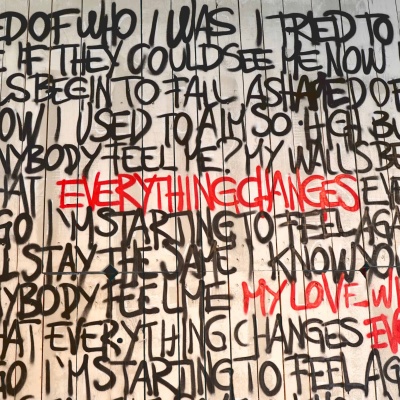 ED OF WHO I WAS I TRIED TO
E IF THEY COULD SEE ME NOW
LS BEGIN TO FALL ASHAMED OF
OW I USED TO AIM SO HIGH BU
NYBODY FEEL ME? MY WALLS BE
HAT EVERYTHING CHANGES EVE
GO I'M STARTING TO FEEL AGA
L STAY THE SAME KNOW YOU
NYBODY FEEL ME MY LOVE WI
HAT EVERYTHING CHANGES EV
GO I'M STARTING TO FEEL AG